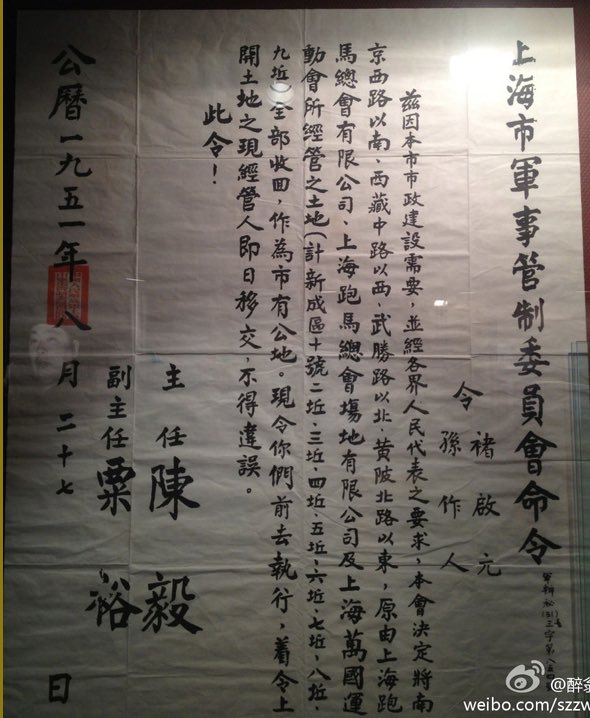 上海市軍事管制委員會命令
令
褚啟元
孫作人
茲因本市市政建設需要，並經各界人民代表之要求，本會決定將南
京西路以南、西藏中路以西、武勝路以北、黃陂北路以東，原由上海跑
馬總會有限公司、上海跑馬總會塲地有限公司及上海萬國運
動會所經管之土地（計新成區十號二坵、三坵、四坵、五坵、六坵、七坵、八坵、
九坵）全部收回，作為市有公地。現令你們前去執行，着令上
開土地之現經管人即日移交，不得違誤。
此令！
主任陳毅
副主任粟裕
公曆一九五一年八月二十七日
@醉翁
weibo.com/szzw